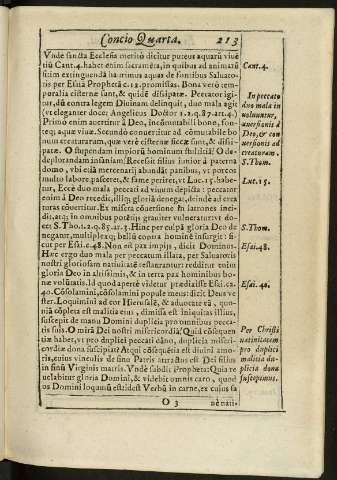 Concio Quarta.
213
Vnde sancta Ecclesia meritò dicitur puteus aquarũ viuẽ
tiũ Cant.4. habet enim sacramẽta, in quibus ad animarũ
sitim extinguendã haurimus aquas de fontibus Saluato-
ris per Esaiã Prophetã c.12. promissas. Bona verò tem-
poralia cisternę sunt, & quidẽ dissipatę. Peccator igi-
tur, dũ contra legem Diuinam delinquit, duo mala agit
(vt eleganter docet Angelicus Doctor 1.2.q.87.art.4.)
Primò enim auertitur à Deo, incommutabili bono, fon-
teq; aquæ viuæ. Secundò conuertitur ad cõmutabile bo
num creaturarum, quæ verè cisternæ siccæ sunt, & dissi-
patæ. O stupendam impiorũ hominum stultitiã! O de-
plorandam insaniam! Recessit filius iunior à paterna
domo, vbi etiã mercenarij abundãt panibus, vt porcos
multo labore pasceret, & fame periret, vt Luc.15. habe-
tur. Ecce duo mala peccati ad viuum depicta: peccator
enim à Deo recedit, illiq; gloriã denegat, deinde ad crea
turas cõuertitur. Ex misera cõuersione in latrones inci-
dit, atq; in omnibus potẽtijs grauiter vulneratur: vt do-
cet S. Tho.1.2.q.85.ar.3. Hinc per culpã gloria Deo de
negatur, multiplexq; bellũ contra hominẽ insurgit: si-
cut per Esai.c.48. Non est pax impijs, dicit Dominus.
Hæc ergo duo mala per peccatum illata, per Saluatoris
nostri gloriosam natiuitatẽ restaurantur: redditur enim
gloria Deo in altissimis, & in terra pax hominibus bo-
næ voluntatis. Id quod apertè videtur prædixisse Esai.ca.
40. Cõsolamini, cõsolamini popule meus: dicit Deus ve
ster. Loquimini ad cor Hierusalẽ, & aduocate eã, quo-
niã cõpleta est malitia eius, dimissa est iniquitas illius,
suscepit de manu Domini duplicia pro omnibus pecca-
tis suis. O mirã Dei nostri misericordiã! Quid cõsequen-
tiæ habet, vt pro duplici peccati dãno, duplicia miseri-
cordiæ dona suscipiat? Atqui cõsequẽtia est diuini amo-
ris, cuius vinculis de sinu Patris attractus est Dei filius
in sinũ Virginis matris. Vndè subdit Propheta: Quia re
uelabitur gloria Domini, & videbit omnis caro, quod
os Domini loquutũ est: dest Verbũ in carne, ex cuius sa
O 3
Cant.4.
In peccato
duo mala in
uoluuntur,
auersionis à
Deo, & con
uersionis ad
creaturam.
S. Thom.
Luc.15.
S. Thom.
Esai.48.
Esai.40.
Per Christi
natiuitatem
pro duplici
malitia du-
plicia dona
suscepimus.